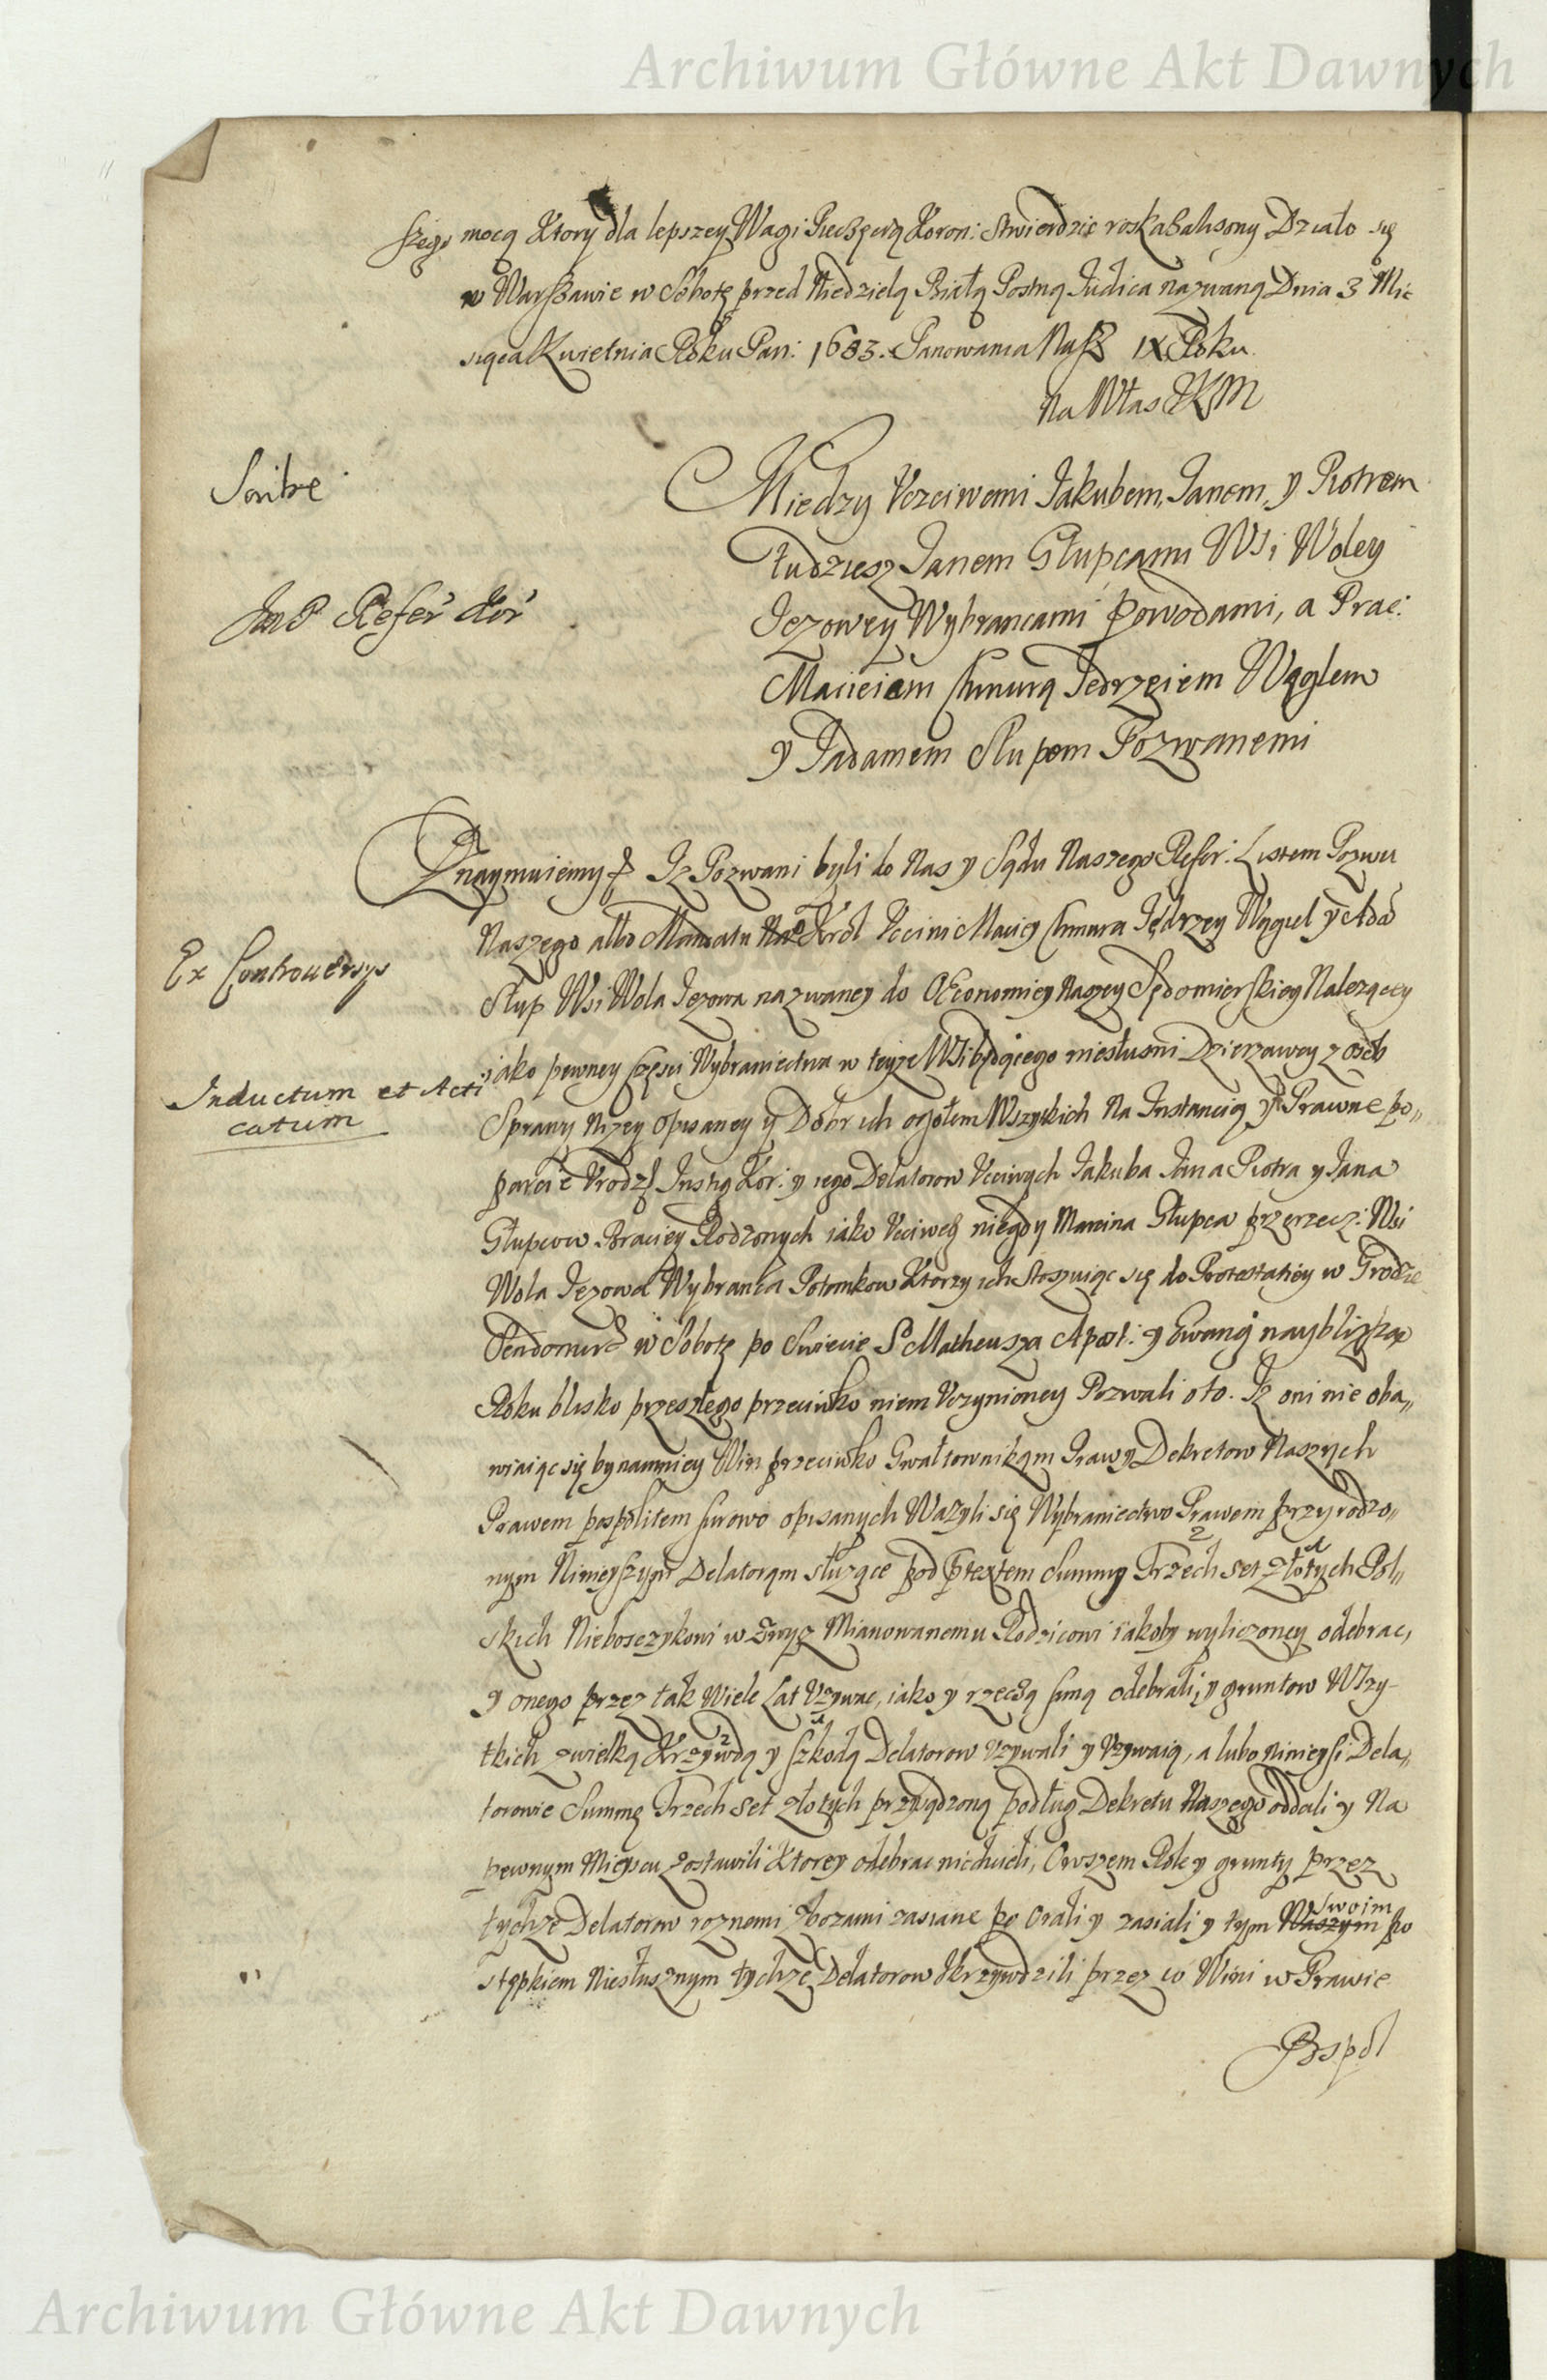 Archiwum Główne Akt Dawnych
szego mocą Ktory dla lepszey Wagi Pieczęcią Koron: stwierdzic roskazalismy Działo się
w Warszawie w Sobotę przed Niedzielą Białą Postną Judica nazwaną Dnia 3 Mie
siąca Kwietnia Roku Pan: 1683. Panowania Nasz IX Roku
Na Włas JKM
Scribe
Miedzy Vcziwemi Jakubem, Janem, y Piotrem
tudziesz Janem Głupcami Wsi Woley
JmP Refer Kor
Jezowey Wybrancami Powodami, a Prac:
Macieiem Chmurą Jedrzeiem Węglem
y Jadamem Słupem Pozwanemi
Oznaymuiemy Iz Pozwani byli do Nas y Sądu Naszego Refer: Listem Pozwu
Naszego albo Mandatu Król Vcciwi Maciey Chmura Jędrzey Węgiel y Adā
Ex Controuersys
Słup Wsi Wola Jezowa nazwaney do OEconomiey Naszey Sędomierskiey Nalezącey
Inductum et Acti
catum
iako pewney częsci Wybraniectwa w teyze Wsi będącego niesłusni Dzierzawcy z osób
Sprawy Nizey opisaney y Dobr ich ogołem Wszytkich Na Instancią y Prawne po„
parcie Vrodz Instig Kor: y iego Delatorow Vcciwych Jakuba Jana Piotra y Jana
Głupcow Braciey Rodzonych iako Vcciweg niegdy Marcina Głupca przerzecz: Wsi
Wola Jezowa Wybranca Potomkow Ktorzy ich stosuiąc się do Protestatiey w Grodzie
Sendomir w Sobotę po Swiecie S Matheusza Apost: y Ewang naybliższe
Roku blisko przeszłego przeciwko niem Vczynioney Pozwali oto. Iz oni nie oba„
wiaiąc się bynamniey Win przeciwko Gwałtownikąm Prawy Dekretow Naszych
Prawem pospolitem surowo opisanych Wazyli się Wybraniectwo Prawem przyrodzo„
nym Ninieyszym Delatorąm służące pod ptextem Summy Trzech set złotych Pol„
skich Nieboszczykowi w zwyz Mianowanemu Rodzicowi iakoby wyliczoney odebrac,
y onego przez tak Wiele Lat Vzywac, iako y rzeczą samą odebrali, y gruntow Wszy-
tkich zwielką Krzywdą y szkodą Delatorow vzywali y Vzywaią, a lubo ninieysi Dela„
torowie Summę Trzech set złotych przysądzoną podług Dekretu Naszego oddali y Na
pewnym Mieyscu zostawili Ktorey odebrac niechcieli, Owszem Role y grunty przez
tychze Delatorow roznemi zbozami zasiane po orali y zasiali y tym Naszym Swoim po
stępkiem Niesłusznym tychze Delatorow skrzywdzili przez co Wini w Prawie
Pospol
Archiwum Główne Akt Dawnych